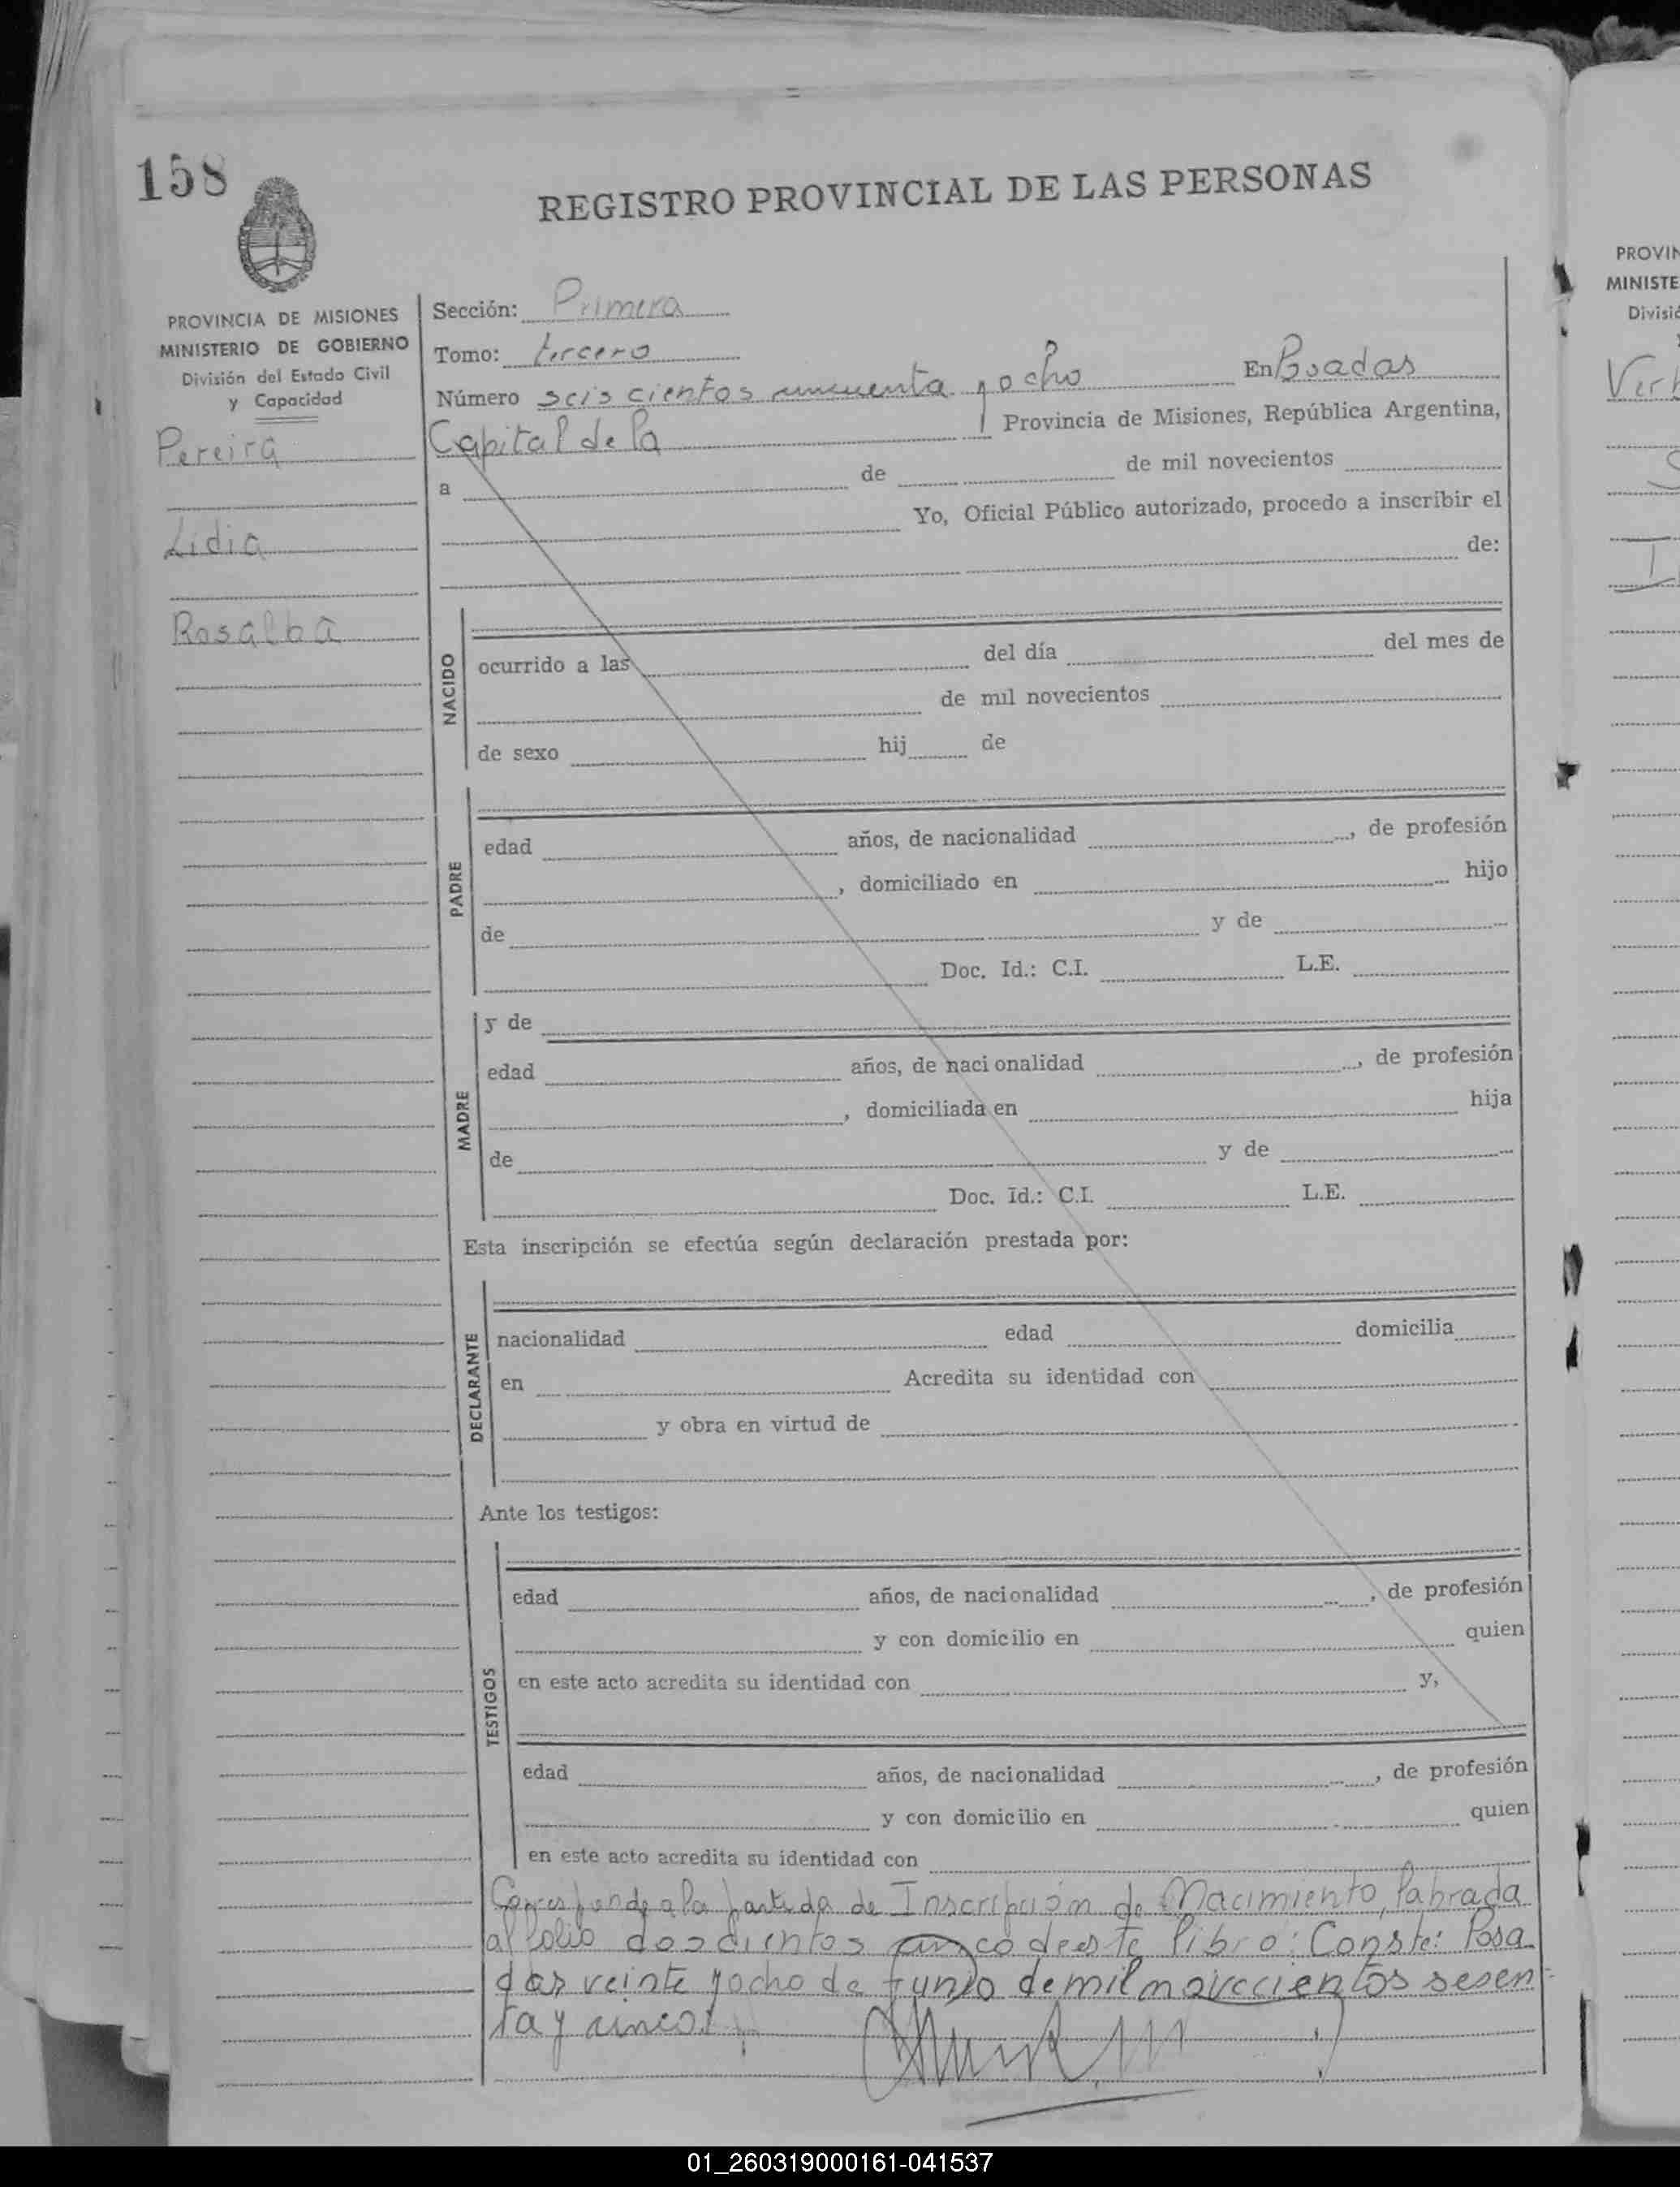 158
REGISTRO PROVINCIAL DE LAS PERSONAS
PROVINCIA DE MISIONES
MINISTERIO DE GOBIERNO
División del Estado Civil
y Capacidad
Pereira
Lidia
Rosalba
Sección: Primera
Tomo: tercero
Número seis cientos cincuenta y ocho En Posadas
Capital de la Provincia de Misiones, República Argentina,
a de de mil novecientos
Yo, Oficial Público autorizado, procedo a inscribir el
de:
NACIDO
ocurrido a las del día del mes de
de mil novecientos
de sexo hij de
PADRE
edad años, de nacionalidad , de profesión
, domiciliado en hijo
de y de
Doc. Id.: C.I. L.E.
MADRE
y de
edad años, de nacionalidad , de profesión
, domiciliada en hija
de y de
Doc. Id.: C.I. L.E.
Esta inscripción se efectúa según declaración prestada por:
DECLARANTE
nacionalidad edad domicilia
en Acredita su identidad con
y obra en virtud de
Ante los testigos:
TESTIGOS
edad años, de nacionalidad , de profesión
y con domicilio en quien
en este acto acredita su identidad con y,
edad años, de nacionalidad , de profesión
y con domicilio en quien
en este acto acredita su identidad con
Corresponde a la partida de Inscripción de Nacimiento, labrada
al folio doscientos cinco de este libro: Conste: Posa
das veinte y ocho de Junio de mil novecientos sesen
ta y cinco.
PROVIN
MINISTE
Divisió
01_260319000161-041537